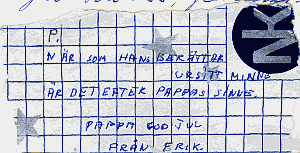 P.
NÄR SOM HANS BERÄTTAR
URSITT MINNE
ÄR DET EFTER PAPPAS SINNE
PAPPA GOD JUL
FRÅN ERIK
NK